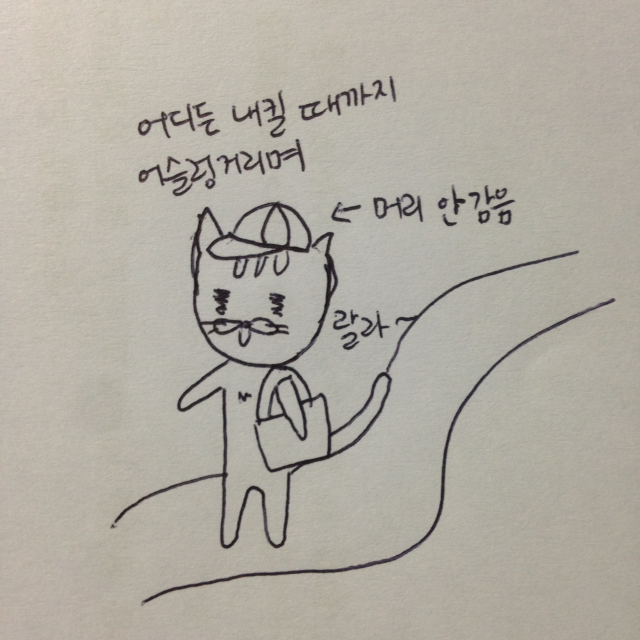 어디든 내킬 때까지
어슬렁거리며
← 머리 안감음
랄라~